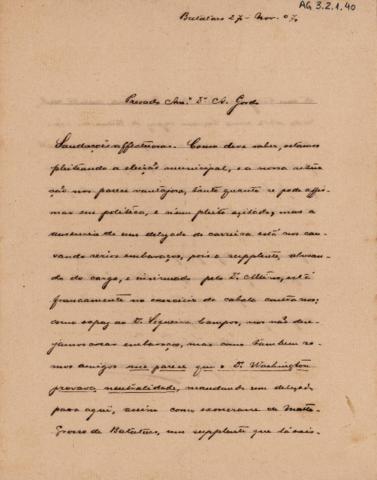 AG 3.2.1.40
Batataes 27 - Nov. 07
Presado Am.º Dr A. Gordo
Saudações affectuosas. Como deve saber, estamos
pleiteando a eleição municipal, e a nossa situa-
ção nos parece vantajosa, tanto quanto se pode affir-
mar em politica, e n'um pleito agitado, mas a
ausencia de um delegado de carreira está nos cau-
sando serios embaraços, pois o supplente, abusan-
do do cargo, e insinuado pelo Dr. está
francamente no exercicio da cabala contra nos;
como ao Dr. Siqueira Campos, nos não dese-
jamos crear embaraços, mas como tambem so-
mos amigos me parece que o Dr. Washington
provará neutralidade, mandando um delegado
para aqui, assim como exonerar de Matto-
Grosso de Batataes, um supplente que lá exis-